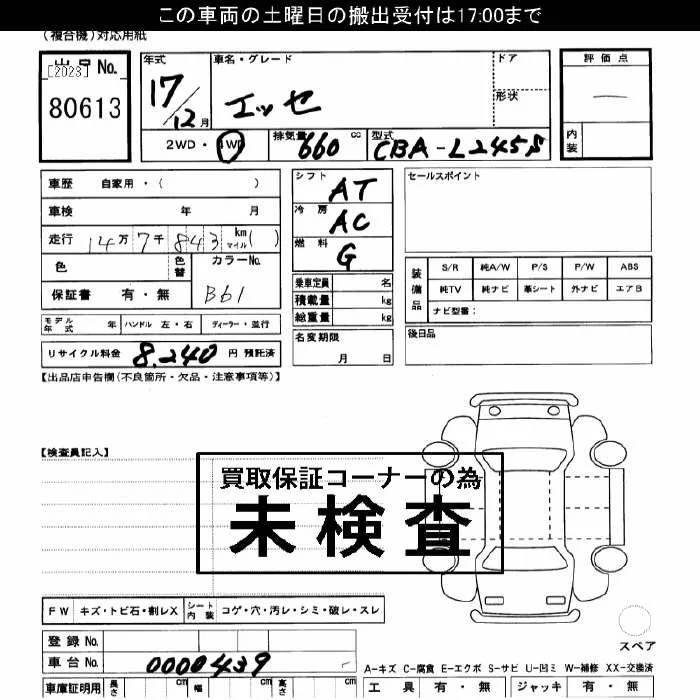 この車両の土曜日の搬出受付は17:00まで
(複合機)対応用紙
出品No.
[2023]
80613
年式
17/12月
車名・グレード
エッセ
ドア
形状
評価点
内装
2WD・4WD
排気量 660 cc
型式 CBA-L245S
車歴 自家用・( )
車検 年 月
走行 14万7千843 km マイル( )
色
色替
カラーNo.
B61
保証書 有・無
シフト AT
冷房 AC
燃料 G
乗車定員 名
積載量 kg
総重量 kg
セールスポイント
装備品
S/R 純A/W P/S P/W ABS
純TV 純ナビ 革シート 外ナビ エアB
ナビ型番:
モデル年式 年 ハンドル 左・右 ディーラー・並行
名変期限
月 日
後日品
リサイクル料金 8,240 円 預託済
【出品店申告欄(不良箇所・欠品・注意事項等)】
【検査員記入】
買取保証コーナーの為
未検査
FW キズ・トビ石・割レX シート内装 コゲ・穴・汚レ・シミ・破レ・スレ
登録No.
車台No. 0000439
スペア
A-キズ C-腐食 E-エクボ S-サビ U-凹ミ W-補修 XX-交換済
車庫証明用 長さ cm 幅 cm 高さ cm
工具 有・無 ジャッキ 有・無